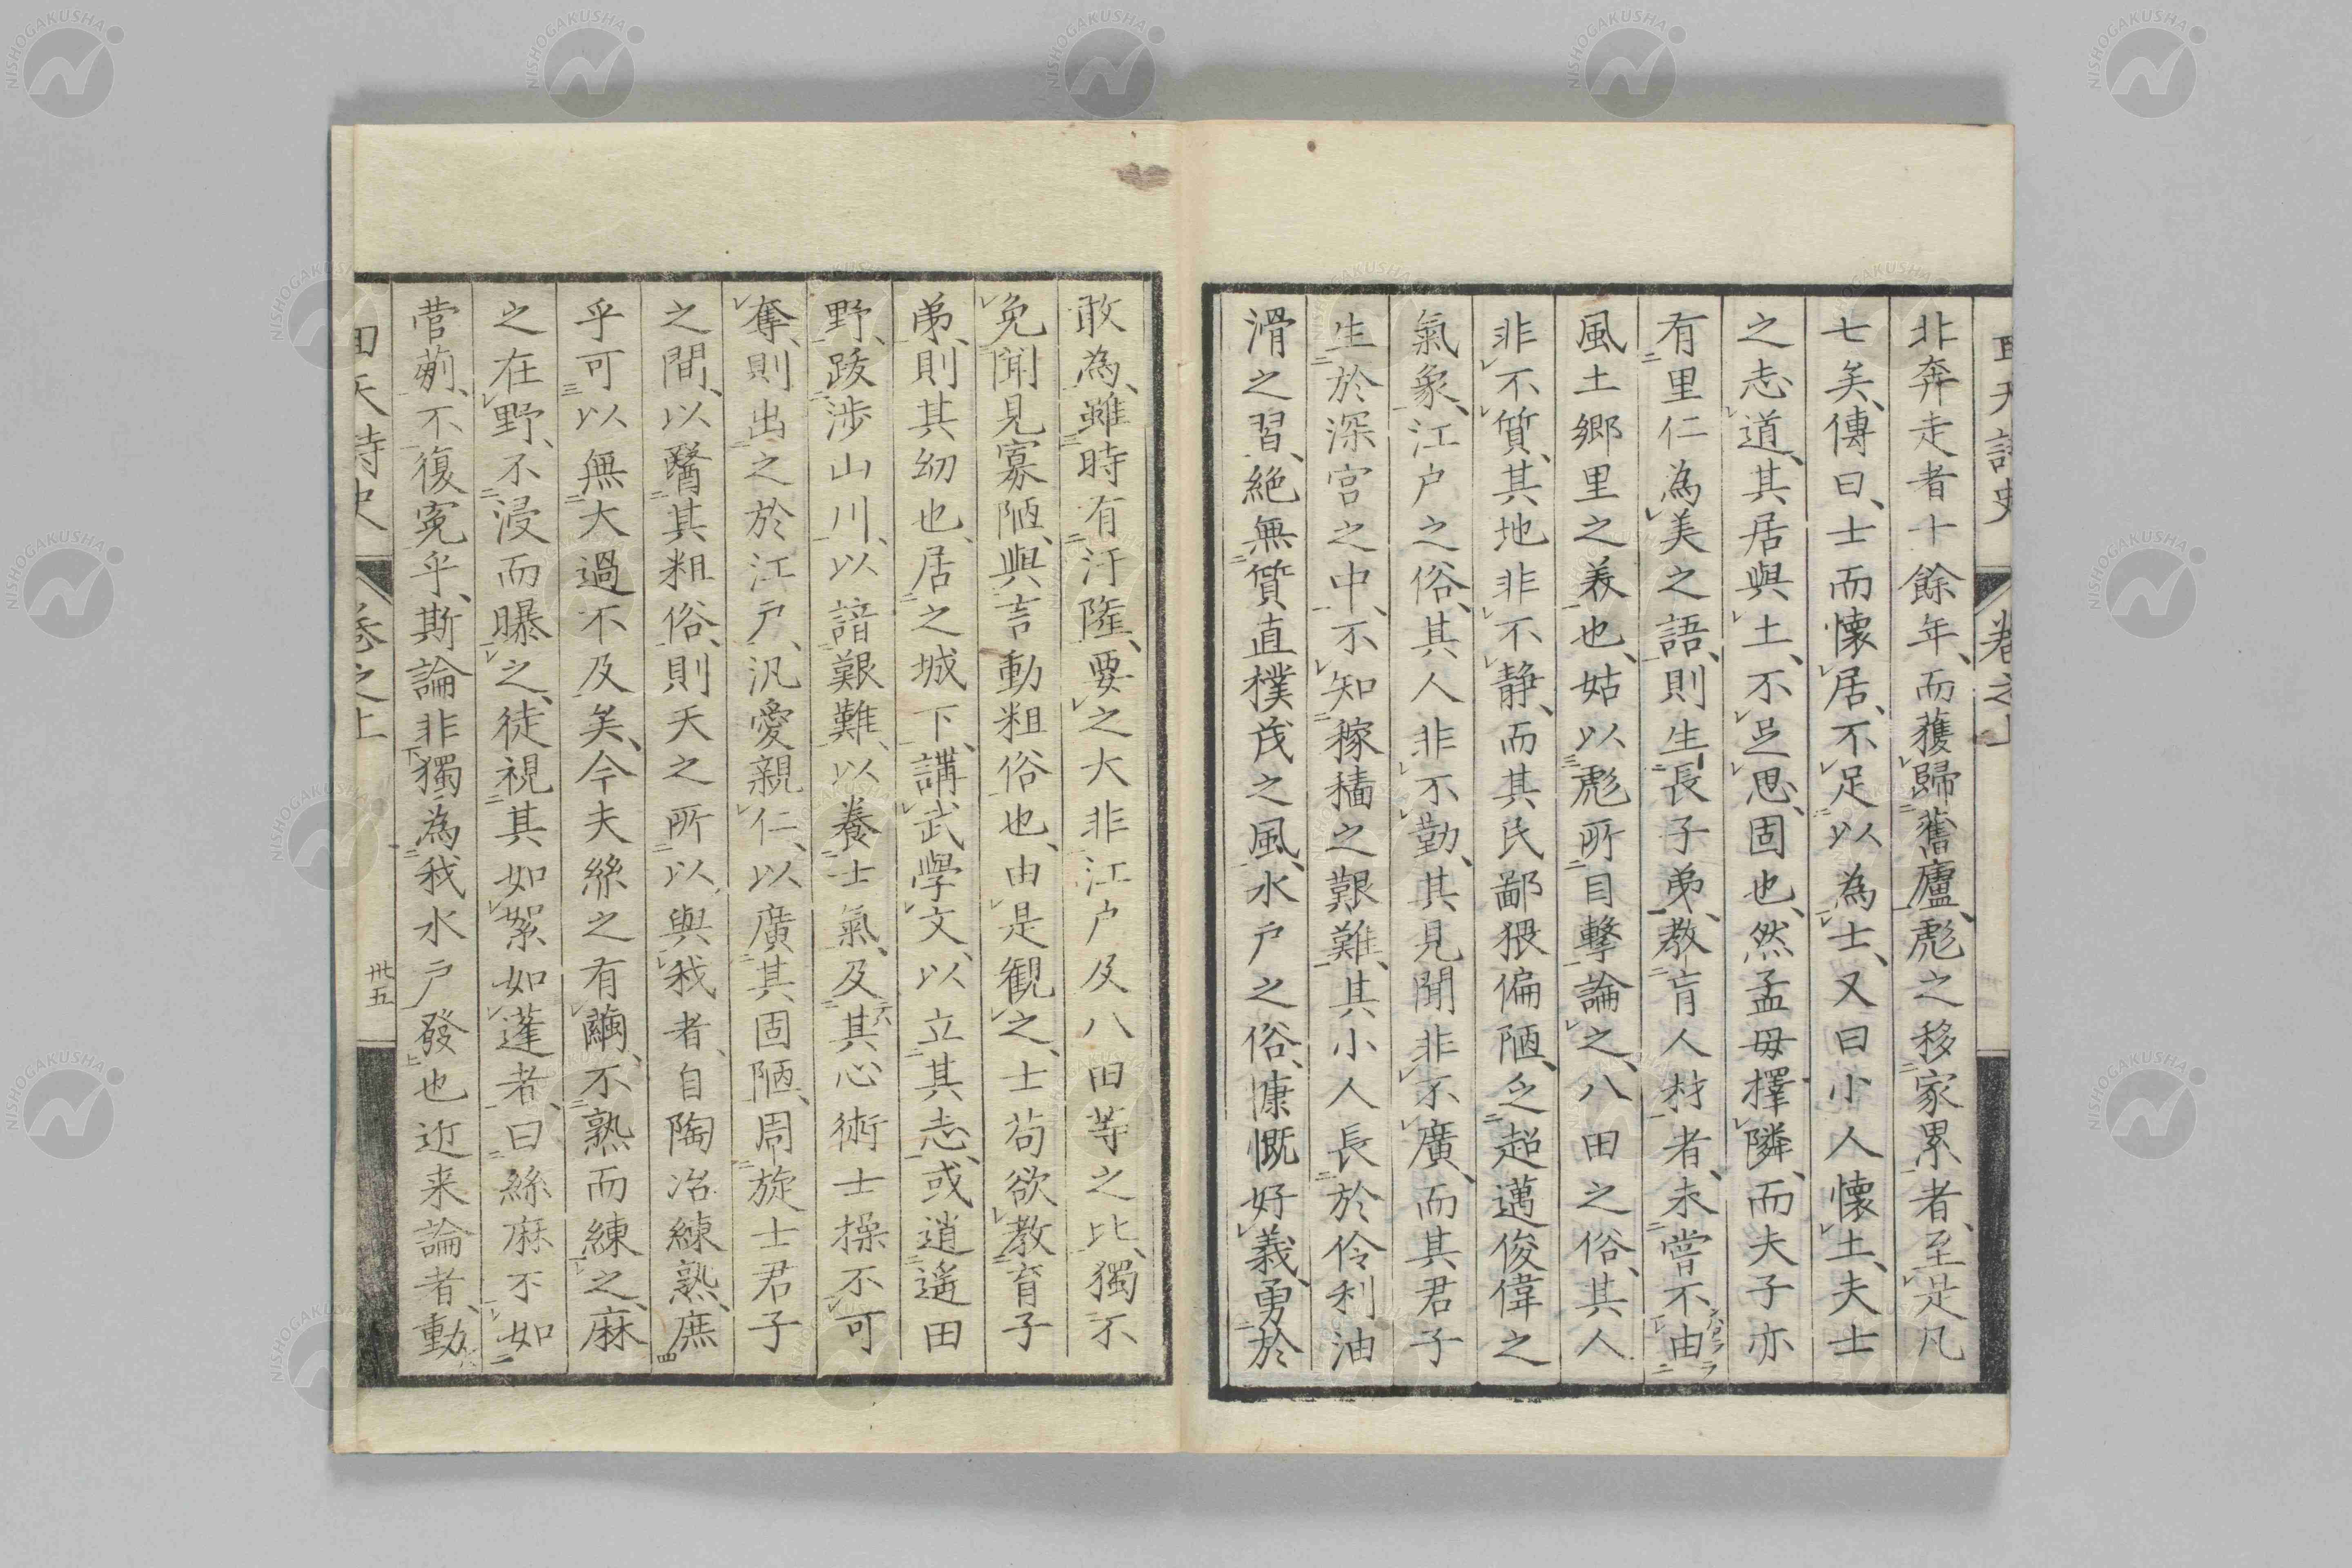 回天詩史 卷之上
非奔走者十餘年、而獲歸舊廬、彪之移家累者、至是凡
七矣、傳曰、士而懷居、不足以為士、又曰小人懷土、夫士
之志道、其居與土、不足思、固也、然孟母擇隣、而夫子亦
有里仁為美之語、則生長子弟、教育人材者、未嘗不由
風土鄉里之美也、姑以彪所目擊論之、八田之俗、其人
非不質、其地非不靜、而其民鄙猥偏陋、乏超邁俊偉之
氣象、江戶之俗、其人非不勤、其見聞非不廣、而其君子
生於深宮之中、不知稼穡之艱難、其小人長於伶利油
滑之習、絕無質直樸茂之風、水戶之俗、慷慨好義、勇於
敢為、雖時有汙隆、要之大非江戶及八田等之比、獨不
免聞見寡陋、與言動粗俗也、由是観之、士苟欲教育子
弟、則其幼也、居之城下、講武學文、以立其志、或逍遙田
野、跋涉山川、以諳艱難、以養士氣、及其心術士操不可
奪、則出之於江戶、汎愛親仁、以廣其固陋、周旋士君子
之間、以醫其粗俗、則天之所以與我者、自陶冶練熟、庶
乎可以無大過不及矣、今夫絲之有繭、不熟而練之、麻
之在野、不浸而曝之、徒視其如絮如蓬者、曰絲麻不如
菅蒯、不復寃乎、斯論非獨為我水戶發也近来論者、動
回天詩史 卷之上 卅五
NISHOGAKUSHA